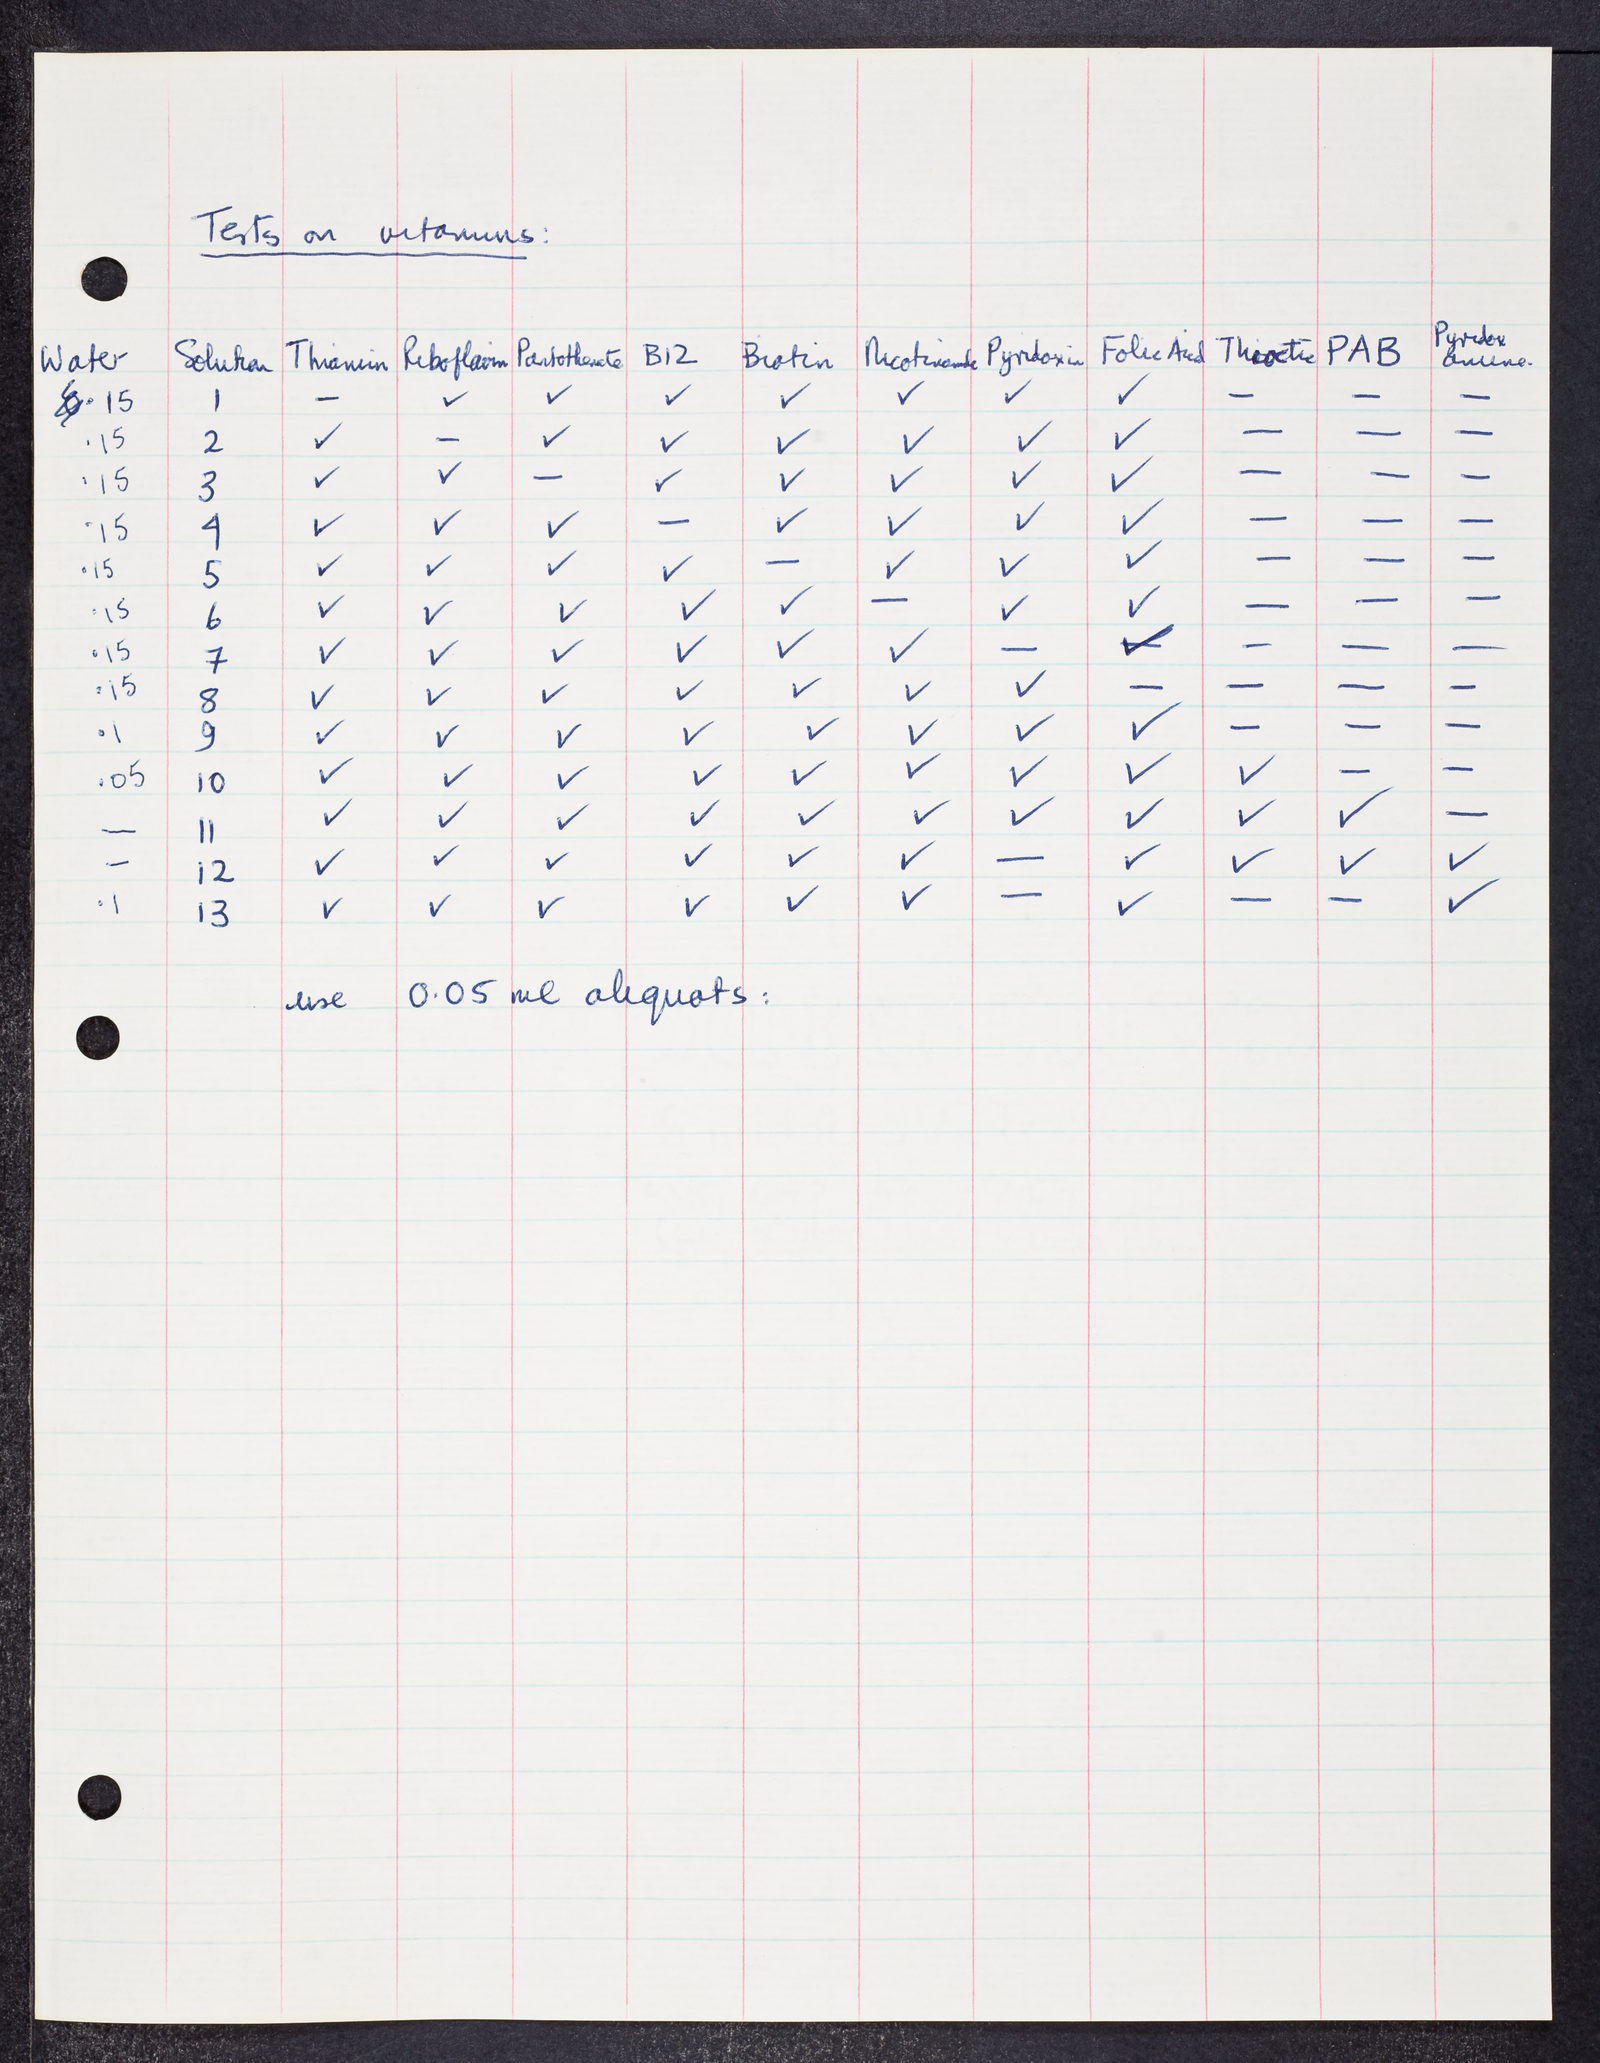 Tests on vitamins:
Water Solution Thiamin Riboflavin Pantothenate B12 Biotin Nicotinamide Pyridoxin Folic Acid Thioctic PAB Pyridox amine.
·15 1 — ✓ ✓ ✓ ✓ ✓ ✓ ✓ — — —
·15 2 ✓ — ✓ ✓ ✓ ✓ ✓ ✓ — — —
·15 3 ✓ ✓ — ✓ ✓ ✓ ✓ ✓ — — —
·15 4 ✓ ✓ ✓ — ✓ ✓ ✓ ✓ — — —
·15 5 ✓ ✓ ✓ ✓ — ✓ ✓ ✓ — — —
·15 6 ✓ ✓ ✓ ✓ ✓ — ✓ ✓ — — —
·15 7 ✓ ✓ ✓ ✓ ✓ ✓ — ✓ — — —
·15 8 ✓ ✓ ✓ ✓ ✓ ✓ ✓ — — — —
·1 9 ✓ ✓ ✓ ✓ ✓ ✓ ✓ ✓ — — —
·05 10 ✓ ✓ ✓ ✓ ✓ ✓ ✓ ✓ ✓ — —
— 11 ✓ ✓ ✓ ✓ ✓ ✓ ✓ ✓ ✓ ✓ —
— 12 ✓ ✓ ✓ ✓ ✓ ✓ — ✓ ✓ ✓ ✓
·1 13 ✓ ✓ ✓ ✓ ✓ ✓ — ✓ — — ✓
use 0.05 ml aliquots: